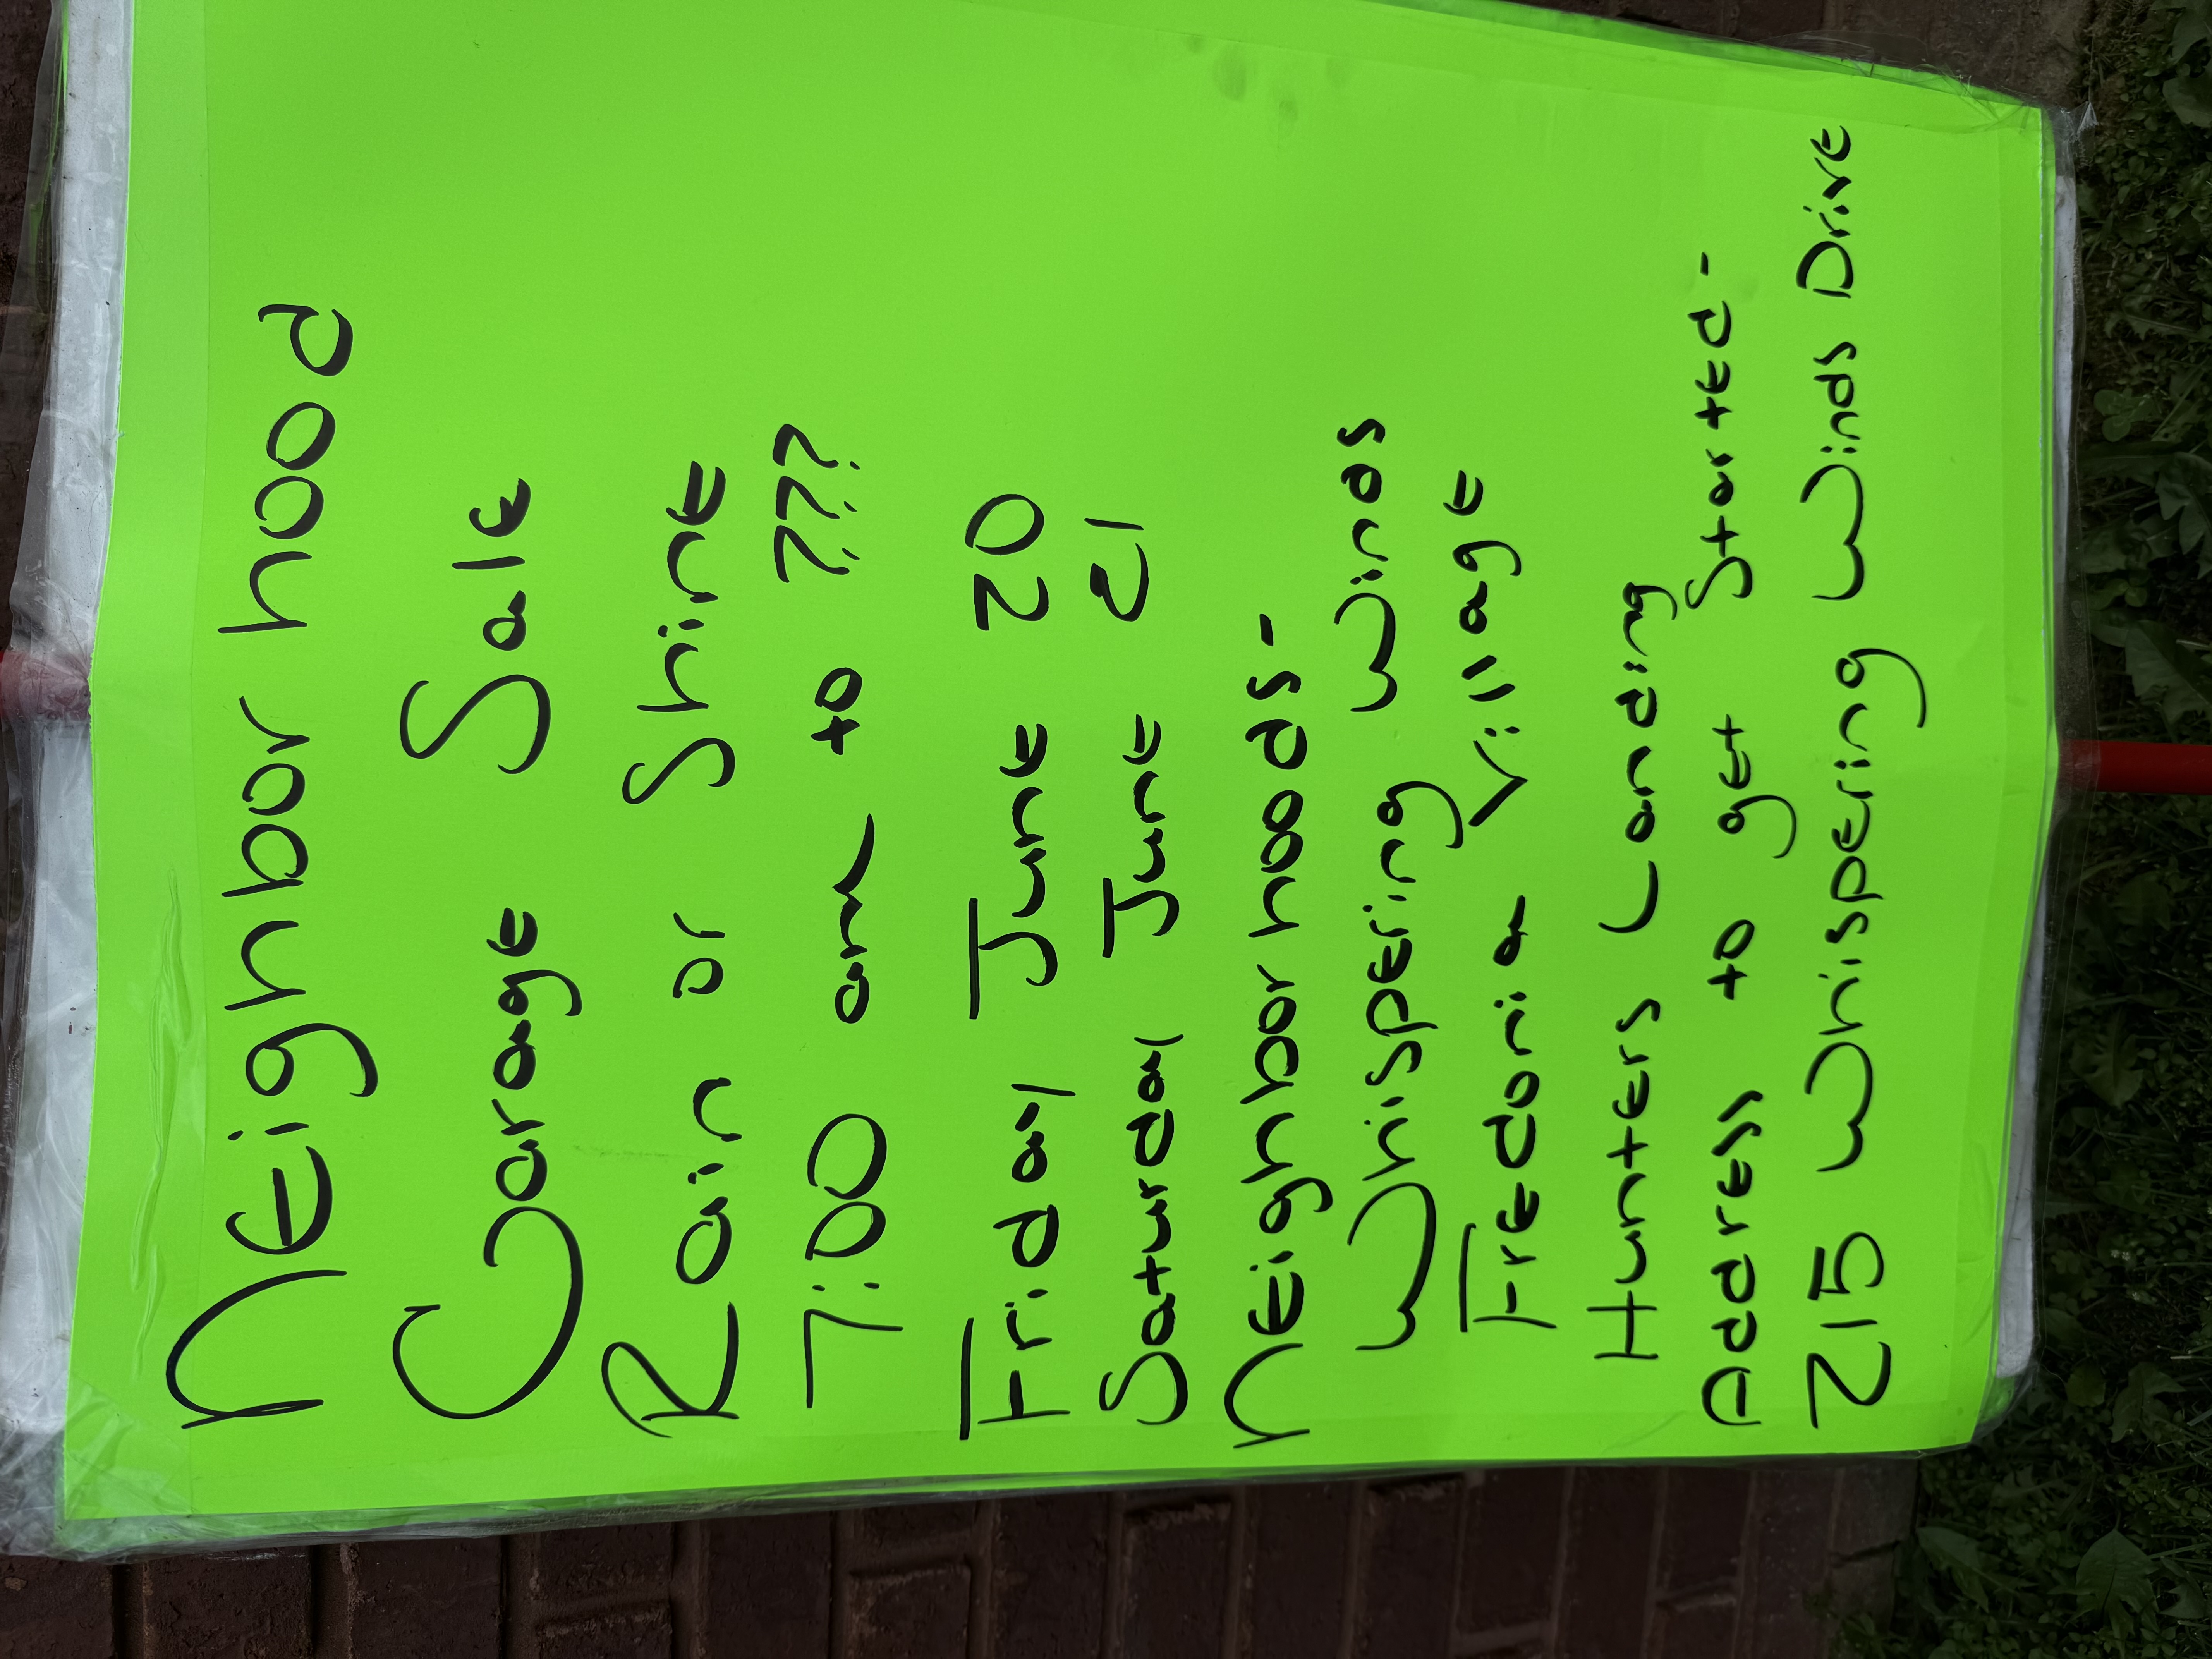 Neighbor hood
Garage Sale
Rain or Shine
7:00 am to ???
Friday June 20
Saturday June 21
Neighbor hoods-
Whispering Winds
Fredonia Village
Hunters Landing
Address to get Started-
215 Whispering Winds Drive